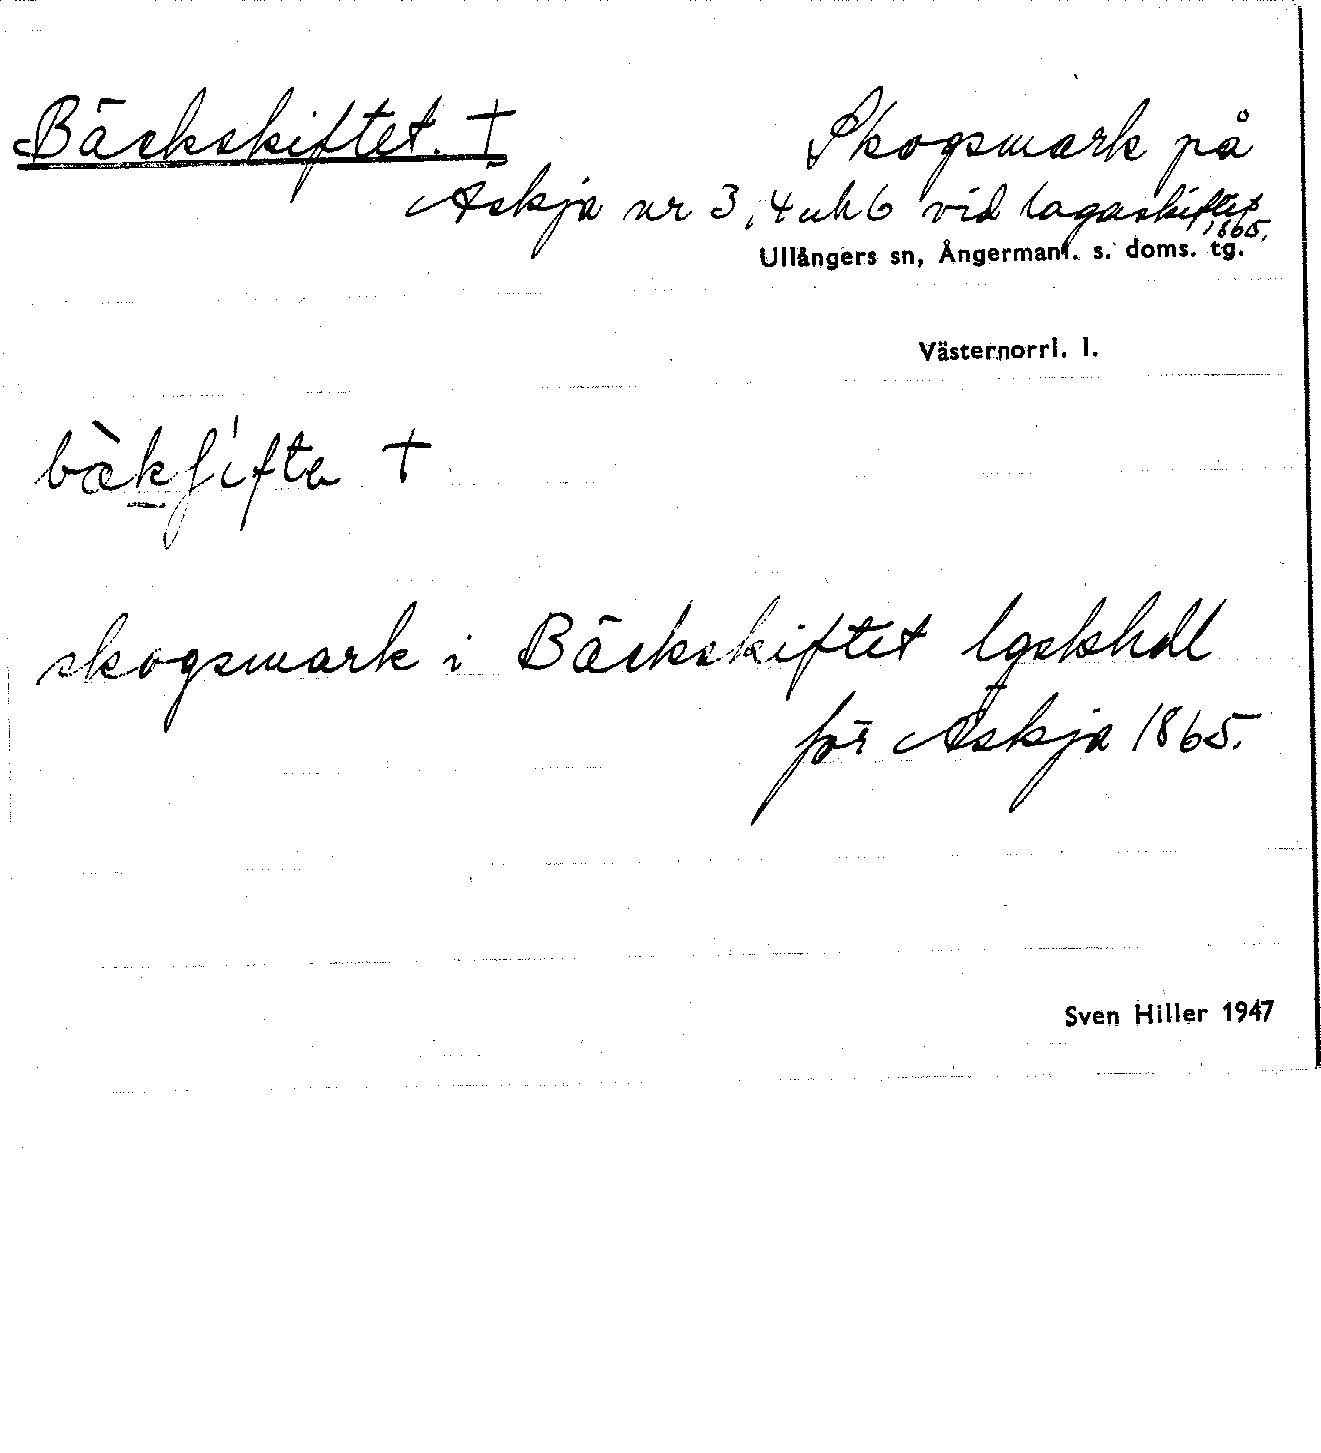 Bäckskiftet. † Skogsmark på
Äskja nr 3, 4 och 6 vid lagaskiftet
1865.
Ullångers sn, Ångermanl. s. doms. tg.
Västernorrl. l.
skogsmark i Bäckskiftet lgskhdl
för Äskja 1865.
Sven Hiller 1947